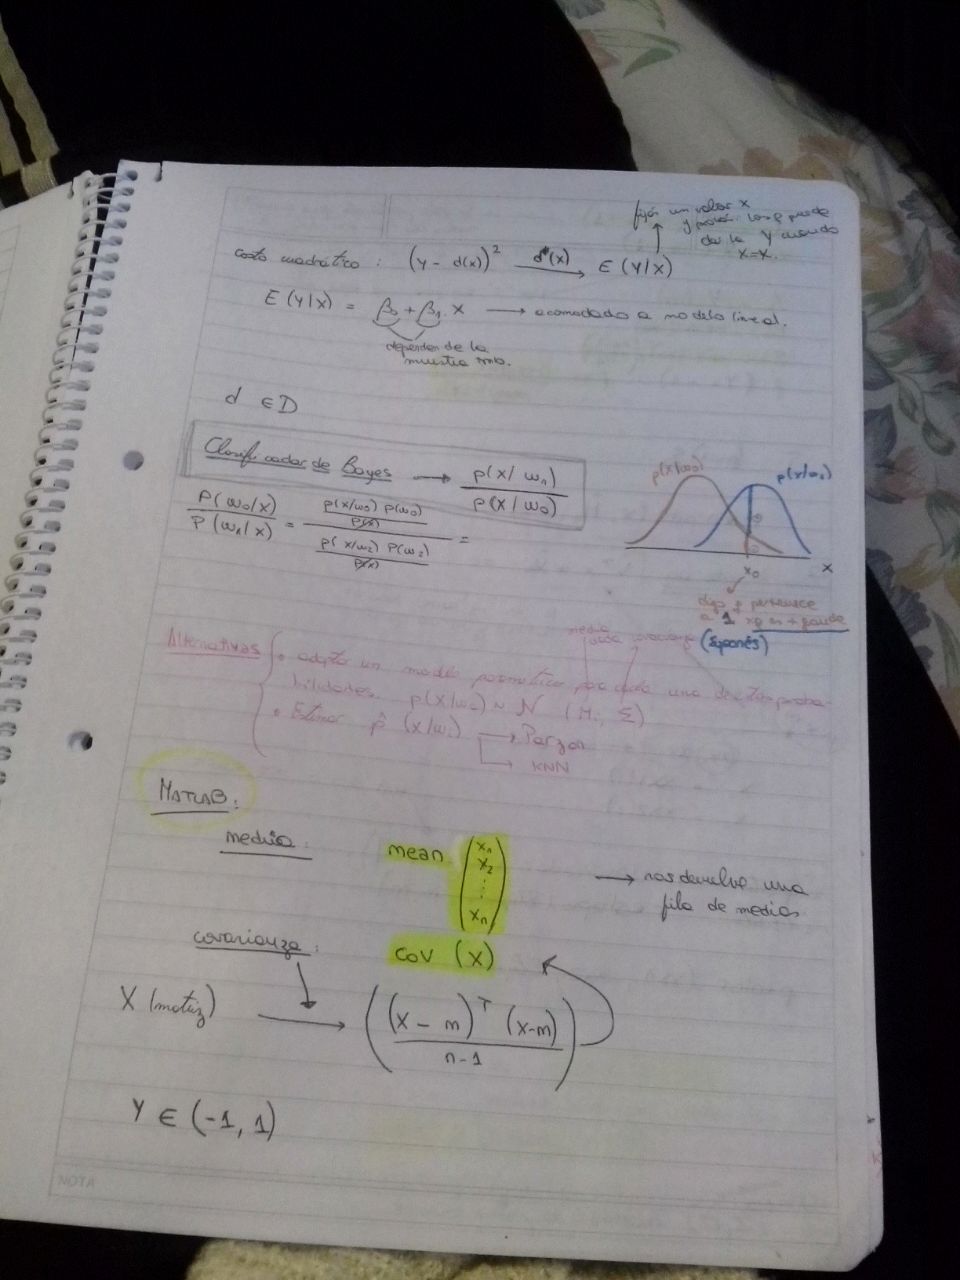 fijás un valor x
y
de la Y cuando
x=x.
costo cuadrático : (y - d(x))² d*(x) → E (Y/X)
E (Y/X) = β₀ + β₁ . X → acomodado a modelo lineal.
dependen de la
muestra
d ∈ D
Clasificador de Bayes → p(x/ω₁) / p(x/ω₀)
p(x/ω₀) p(x/ω₁)
P(ω₀/x) / P(ω₁/x) = (p(x/ω₀) p(ω₀) / p(x)) / (p(x/ω₂) P(ω₂) / p(x)) =
x₀ x
digo q pertenece
a 1 xq es + grande
(Supones)
media
Alternativas
• adoptar un modelo parametrico para cada una de estas proba-
bilidades. p(x/ω₀) ~ N (Mᵢ, Σ)
• Estimar p̂ (x/ωᵢ) → Parzen
→ KNN
MATLAB:
media: mean (x₁ x₂ ⋮ xₙ) → nos devuelve una
fila de medias
covarianza: cov (X)
X (matriz) → ((x - m)ᵀ (x-m) / n-1)
Y ∈ (-1, 1)
NOTA